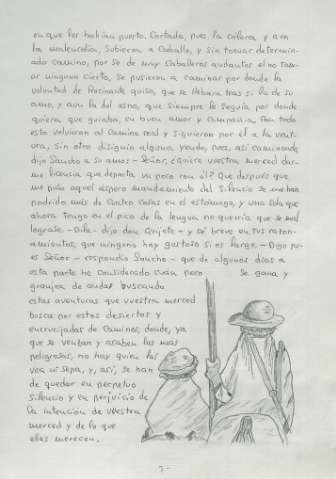 en que los habían puesto. Cortada, pues, la cólera, y aun
la malencolía, subieron a Caballo, y sin tomar determina-
do camino, por se de muy Caballeros andantes el no tom-
ar ninguno cierto, se pusieron a caminar por donde la
voluntad de Rocinante quiso, que se llevaba tras sí la de su
amo, y aun la del asno, que siempre le seguía por donde
quiera que guiaba, en buen amor y Compañía. Con todo
esto volvieron al Camino real y siguieron por él a la vent-
ura, sin otro disignio alguno. yendo, pues, así caminando
dijo Sancho a su amo: - Señor, ¿quiere vuestra merced dar-
me licencia que departa un poco con él? Que después que
me puso aquel áspero mandamiento del Silencio se me han
podrido más de cuatro Cosas en el estómago, y una sola que
ahora tengo en el pico de la lengua no querría que se mal
lograse. - Dila - dijo don Quijote - y sé breve en tus razon-
amientos, que ninguno hay gustoso si es largo. - Digo pu-
es Señor - respondió Sancho - que de algunos días a
esta parte he considerado cuán poco se gana y
granjea de andar buscando
estas aventuras que vuestra merced
busca por estos desiertos y
encrucijadas de Caminos, donde, ya
que se venzan y acaben las más
peligrosas, no hay quien las
vea ni sepa, y, así, se han
de quedar en perpetuo
silencio y en perjuicio de
la intención de vuestra
merced y de lo que
ellas merecen.